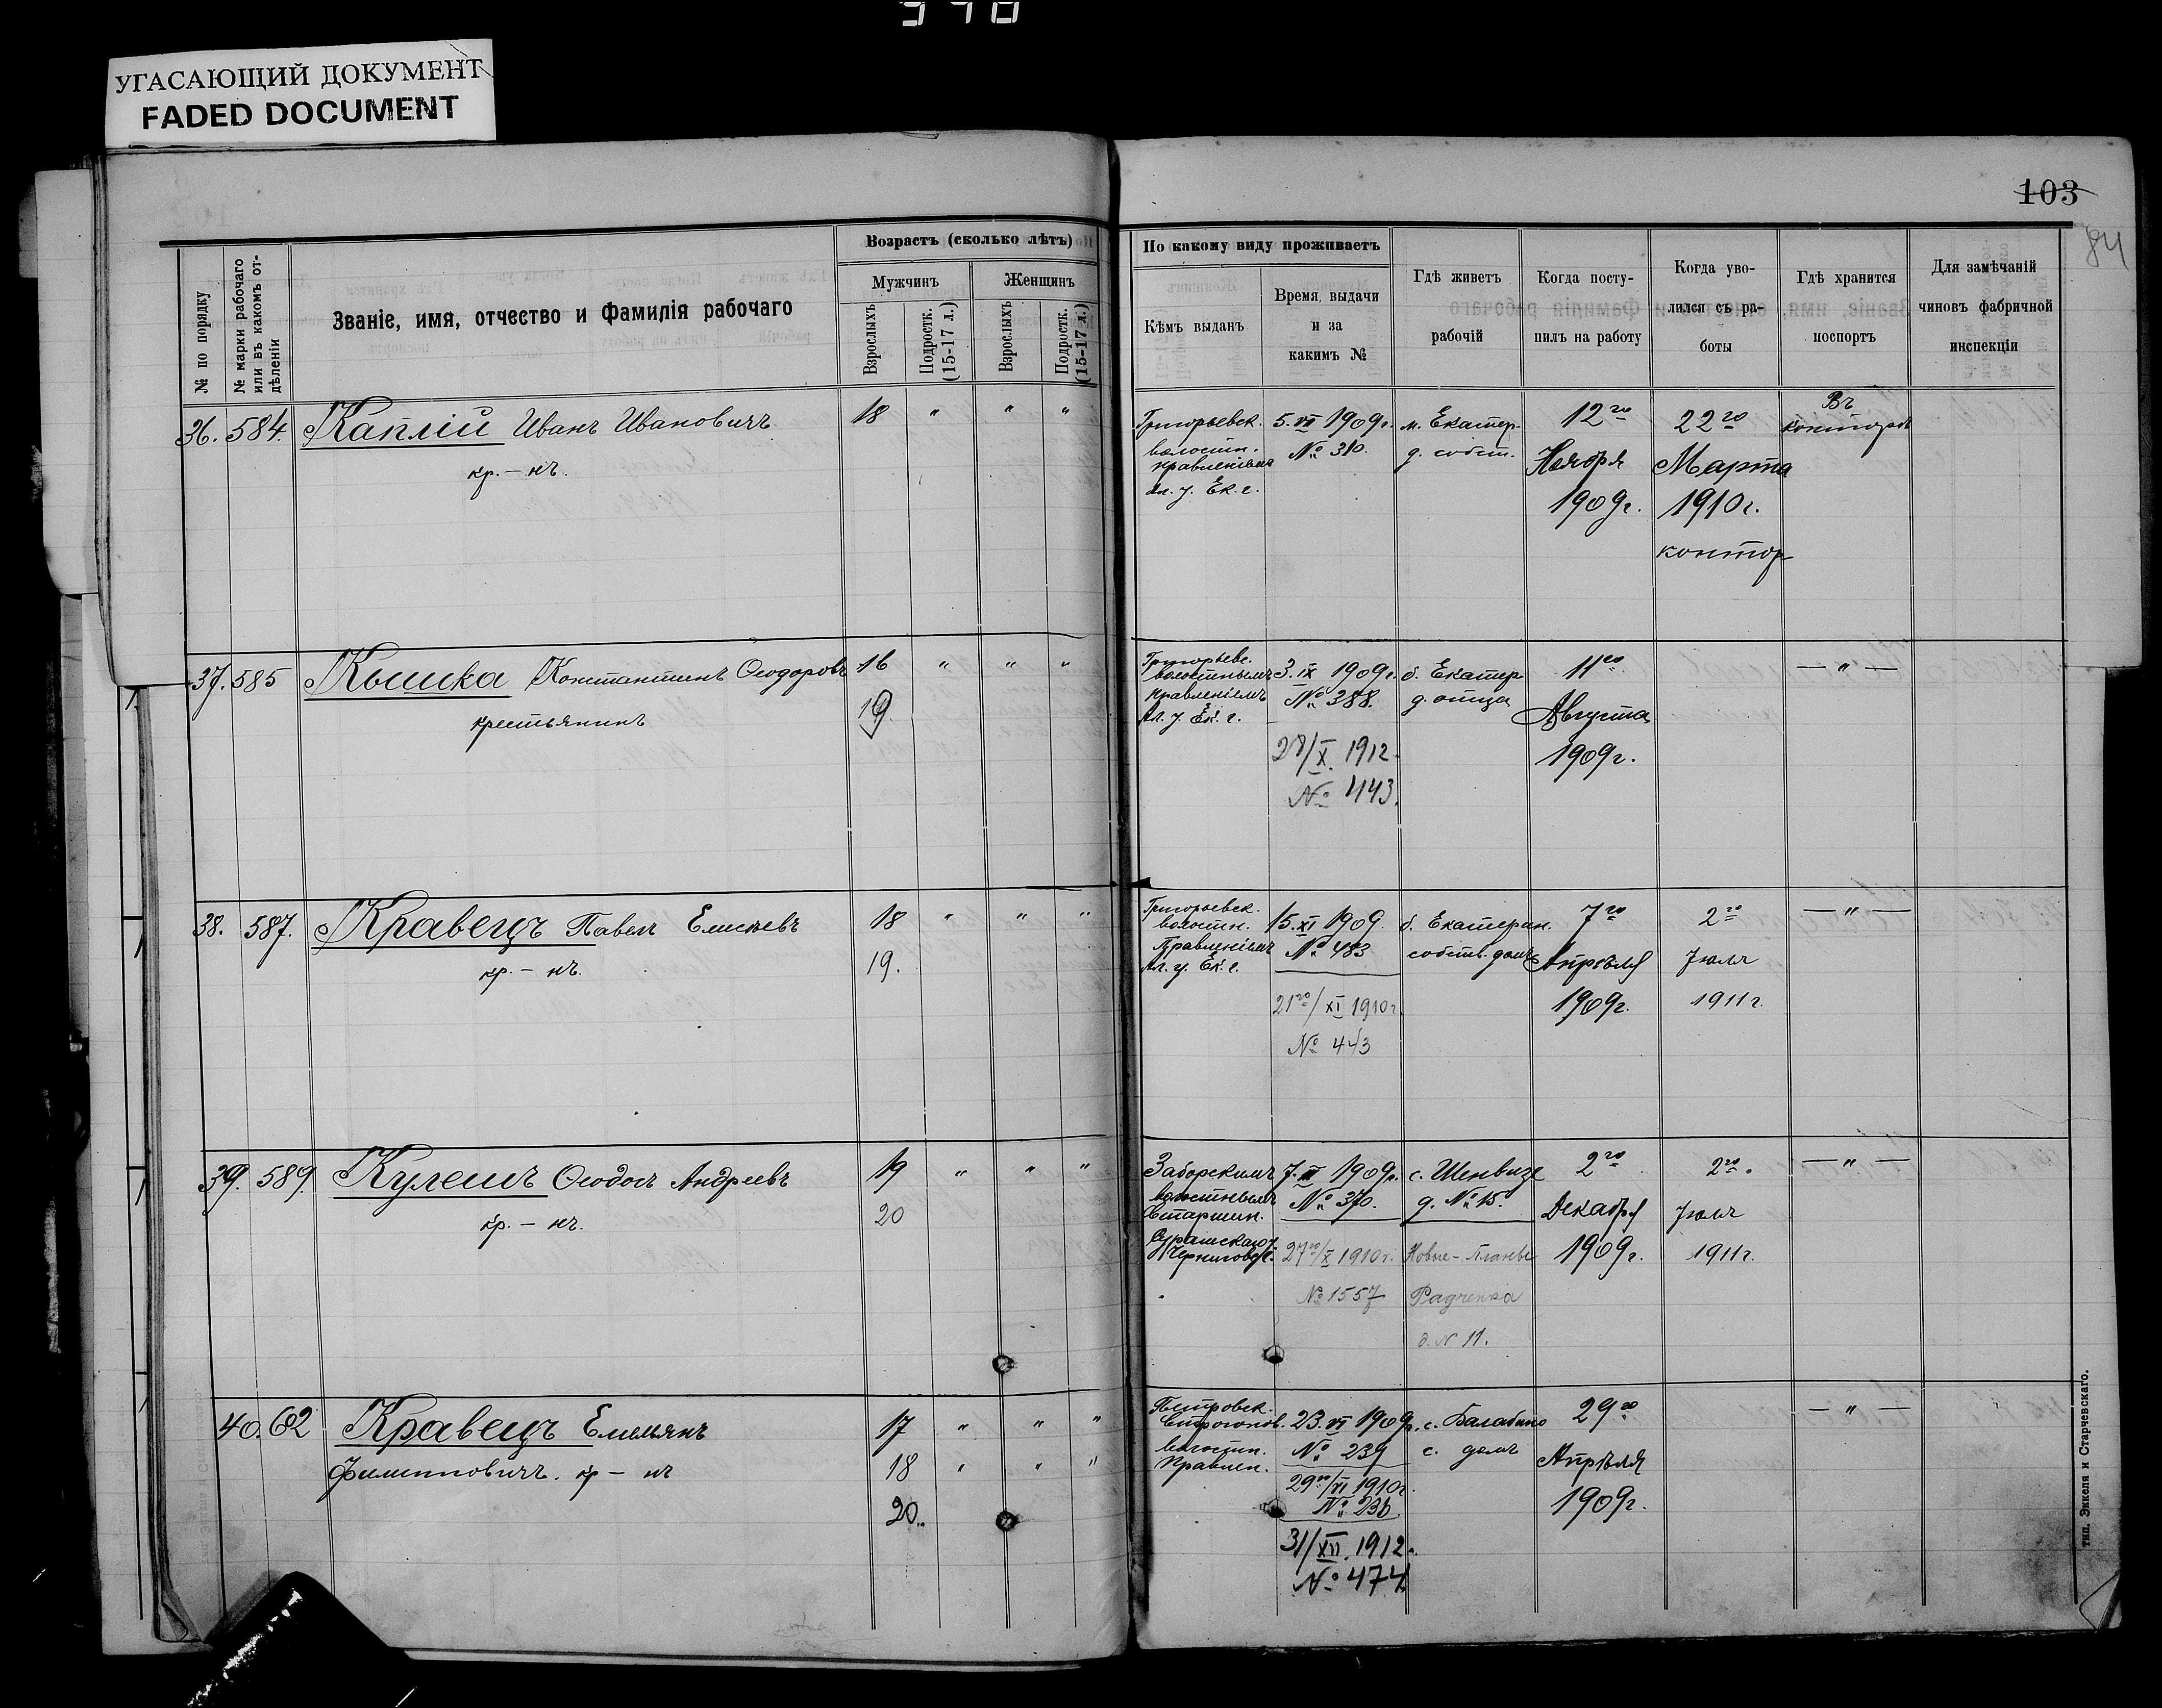 УГАСАЮЩИЙ ДОКУМЕНТ
FADED DOCUMENT
103
84
№ по порядку
№ марки рабочаго или въ какомъ отдѣленіи
Званіе, имя, отчество и фамилія рабочаго
Возрастъ (сколько лѣтъ)
Мужчинъ
Женщинъ
Взрослыхъ
Подростк. (15-17 л.)
Взрослыхъ
Подростк. (15-17 л.)
По какому виду проживаетъ
Кѣмъ выданъ
Время выдачи
и за
какимъ №
Гдѣ живетъ
рабочій
Когда посту-
пилъ на работу
Когда уво-
лился съ ра-
боты
Гдѣ хранится
поспортъ
Для замѣчаній
чиновъ фабричной
инспекціи
36. 584. Каплій Иванъ Ивановичъ 18 " " "
кр. – нъ.
Григорьевск.
волостн.
правленіемъ
Ал. у. Ек. г.
5. VI 1909г.
№ 310.
м. Екатер.
д. собст.
12го
Ноября
1909г.
22го
Марта
1910г.
контор
Въ
конторѣ
37. 585 Кышка Константинъ Ѳеодоровъ 16 " " "
крестьянинъ
19.
Григорьевс.
волостнымъ
правленіемъ
Ал. у. Ек. г.
3. IX 1909г.
№ 388.
28/X. 1912.
№ 443.
б. Екатер
д. отца
11го
Августа
1909г.
— " —
38. 587. Кравецъ Павелъ Елисѣевъ 18 " " "
кр. – нъ.
19.
Григорьевск.
волостн.
Правленіемъ
Ал. у. Ек. г.
15. XI 1909.
№ 483
21го/XI 1910г.
№ 443
б. Екатерин.
собств. домъ
7го
Апрѣля
1909г.
2го
Іюля
1911г.
— " —
39. 589. Кулешъ Ѳеодосъ Андреевъ 19 " " "
кр. – нъ.
20
Заборскимъ
волостнымъ
Старшин.
Суражскаго у.
Черниговс. г.
№ 370.
27го/X 1910г.
№ 1557
с. Шенвизе
д. № 15.
Новые-Планы
д. N 11.
2го
Декабря
1909г.
2го.
Іюля
1911г.
— " —
40. 62 Кравецъ Емельянъ 17 " " "
Филипповичъ. кр – нъ 18 " " "
20.
Петровск.
Строгонов.
волостн.
Правлен.
23. VI 1909г.
№ 239
29го/VI 1910г.
№ 236
31/XII. 1912.
№ 474
с. Балабино
с. домъ
29го
Апрѣля
1909г.
— " —
тип. Эккеля и Старчевскаго.